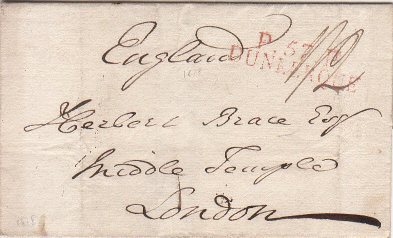 England
P. 57. P.
DUNKERQUE
1/2
Herbert Brace Esq
Middle Temple
London